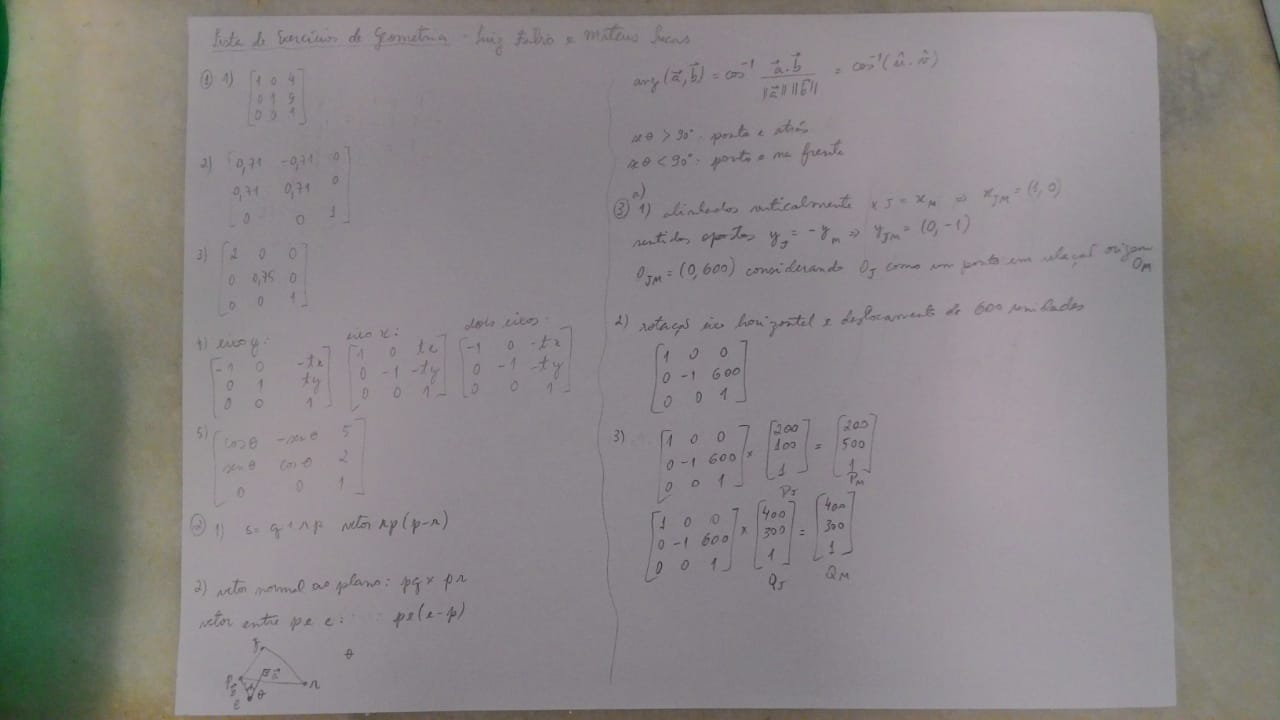 Lista de Exercícios de Geometria - Luiz Fabio e Mateus Lucas
① 1) [1 0 4
0 1 9
0 0 1]
2) [0,71 -0,71 0
0,71 0,71 0
0 0 1]
3) [2 0 0
0 0,75 0
0 0 1]
4) eixo y: eixo x: dois eixos:
[-1 0 -tx [1 0 tx [-1 0 -tx
0 1 ty 0 -1 -ty 0 -1 -ty
0 0 1] 0 0 1] 0 0 1]
5) [cosθ -senθ 5
senθ cosθ 2
0 0 1]
② 1) s = q + rp vetor rp (p-r)
2) vetor normal ao plano: pq × pr
vetor entre p e e: pe (e-p)
q
θ
p
n
r
e θ
ang(a⃗, b⃗) = cos⁻¹ a⃗.b⃗ / ||a⃗|| ||b⃗|| = cos⁻¹(û.v̂)
se θ > 90° - ponto é atrás
se θ < 90° - ponto é na frente
a)
③ 1) alinhados verticalmente xJ = xM ⇒ xJM = (1, 0)
sentidos opostos yJ = -yM ⇒ yJM = (0, -1)
OJM = (0, 600) considerando OJ como um ponto em relação origem OM
2) rotação eixo horizontal e deslocamento de 600 unidades
[1 0 0
0 -1 600
0 0 1]
3) [1 0 0 [200 [200
0 -1 600 × 100 = 500
0 0 1] 1] 1]
PJ PM
[1 0 0 [400 [400
0 -1 600 × 300 = 300
0 0 1] 1] 1]
QJ QM